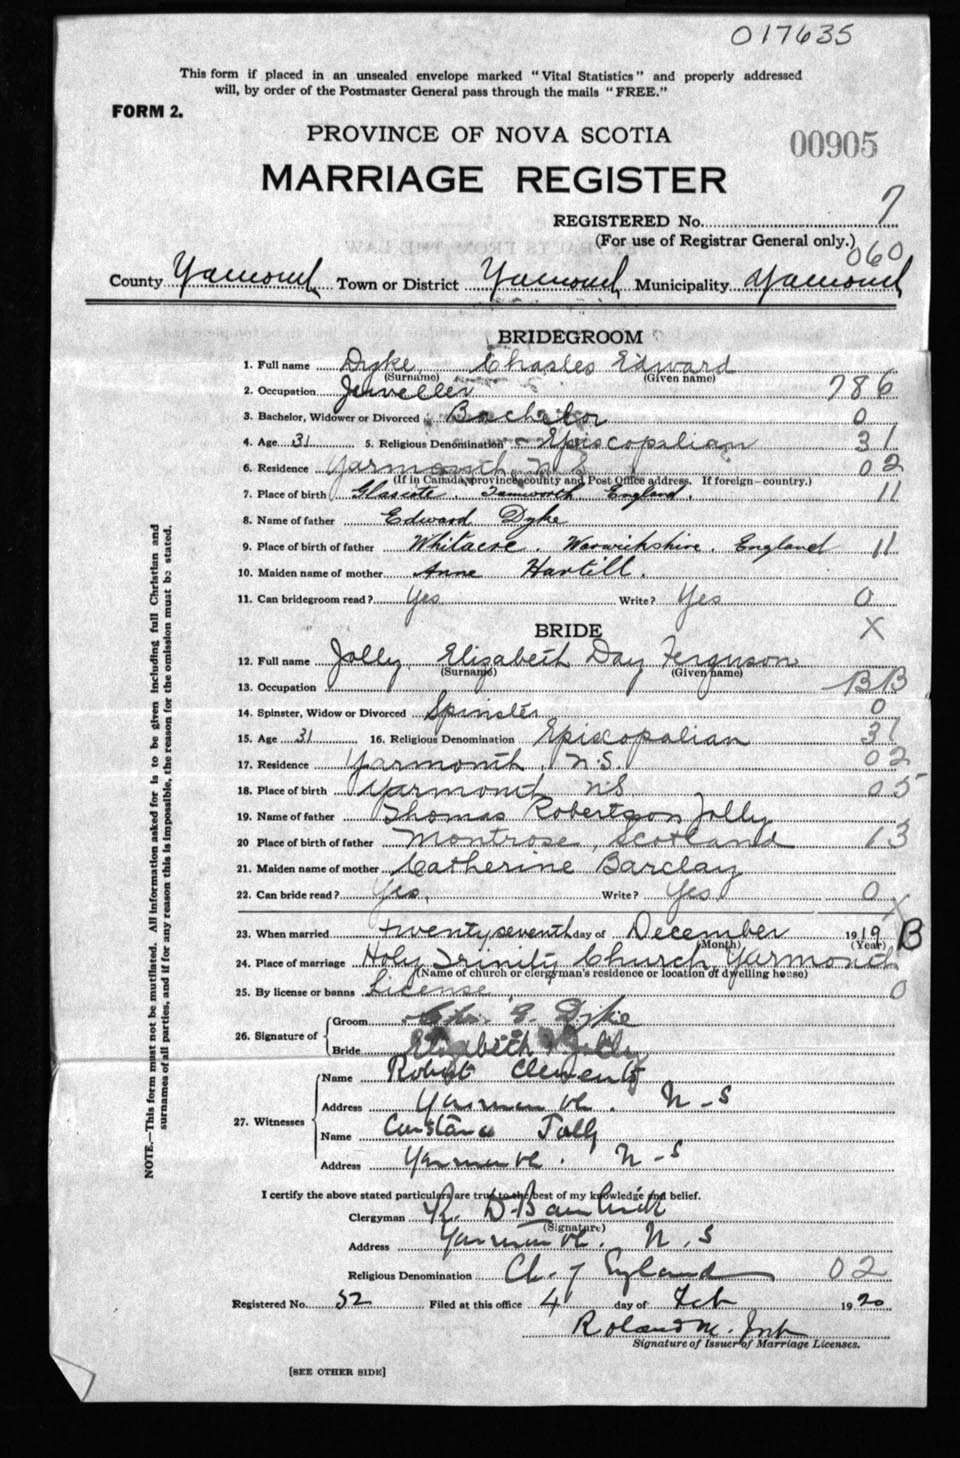 017635
This form if placed in an unsealed envelope marked "Vital Statistics" and properly addressed
will, by order of the Postmaster General pass through the mails "FREE."
FORM 2.
PROVINCE OF NOVA SCOTIA
00905
MARRIAGE REGISTER
REGISTERED No. 7
(For use of Registrar General only.)
060
County Yarmouth Town or District Yarmouth Municipality Yarmouth
BRIDEGROOM
1. Full name Dyke Charles Edward
(Surname) (Given name)
2. Occupation Jeweller 786
3. Bachelor, Widower or Divorced Bachelor 0
4. Age 31 5. Religious Denomination Episcopalian 31
6. Residence Yarmouth N.S. 02
(If in Canada, province, county and Post Office address. If foreign-country.)
7. Place of birth Glascote. Tamworth England. 11
8. Name of father Edward Dyke
9. Place of birth of father Whitacre. Warwickshire. England 11
10. Maiden name of mother Anne Hartill.
11. Can bridegroom read? Yes Write? Yes 0
BRIDE X
12. Full name Jolly, Elizabeth Day Ferguson
(Surname) (Given name)
13. Occupation BB
14. Spinster, Widow or Divorced Spinster 0
15. Age 31 16. Religious Denomination Episcopalian 31
17. Residence Yarmouth, N.S. 02
18. Place of birth Yarmouth NS 05
19. Name of father Thomas Robertson Jolly
20 Place of birth of father Montrose, Scotland 13
21. Maiden name of mother Catherine Barclay
22. Can bride read? Yes, Write? Yes 0
X
23. When married twenty seventh day of December 1919 B
(Month) (Year)
24. Place of marriage Holy Trinity Church Yarmouth
(Name of church or clergyman's residence or location of dwelling house)
25. By license or banns License 0
26. Signature of Groom Chs. E. Dyke
Bride Elizabeth Jolly
27. Witnesses
Name Robert Clements
Address Yarmouth. N-S
Name Constance Jolly
Address Yarmouth. N-S
I certify the above stated particulars are true to the best of my knowledge and belief.
Clergyman R. D. Bambrick
(Signature)
Address Yarmouth. N.S
Religious Denomination Ch. of England 02
Registered No. 52 Filed at this office 4 day of Feb 1920
Roland M.
Signature of Issuer of Marriage Licenses.
[SEE OTHER SIDE]
NOTE.—This form must not be mutilated. All information asked for is to be given including full Christian and
surnames of all parties, and if for any reason this is impossible, the reason for the omission must be stated.